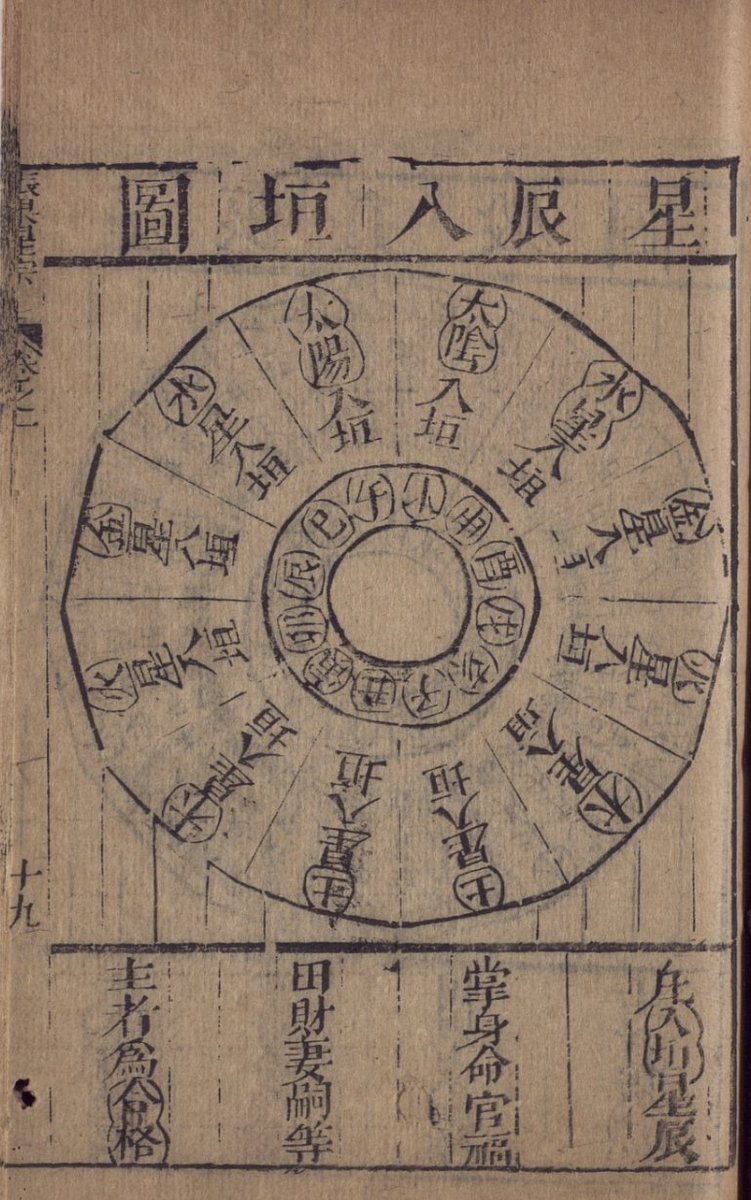 星辰入垣圖
太陰入垣
水星入垣
金星入垣
火星入垣
木星入垣
土星入垣
土星入垣
木星入垣
火星入垣
金星入垣
水星入垣
太陽入垣
午未申酉戌亥子丑寅卯辰巳
凡入垣星辰
掌身命官福
田財妻嗣等
主者為合格
十九